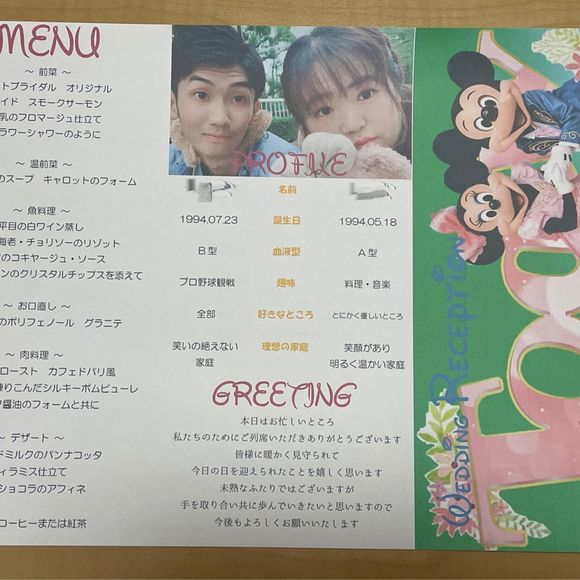 MENU
～ 前菜 ～
トブライダル オリジナル
イド スモークサーモン
乳のフロマージュ仕立て
ラワーシャワーのように
～ 温前菜 ～
のスープ キャロットのフォーム
～ 魚料理 ～
平目の白ワイン蒸し
海老・チョリソーのリゾット
のコキヤージュ・ソース
ンのクリスタルチップスを添えて
～ お口直し ～
のポリフェノール グラニテ
～ 肉料理 ～
ロースト カフェドパリ風
練りこんだシルキーポムピューレ
醤油のフォームと共に
～ デザート ～
ドミルクのパンナコッタ
ィラミス仕立て
ショコラのアフィネ
コーヒーまたは紅茶
PROFILE
名前
1994.07.23 誕生日 1994.05.18
B型 血液型 A型
プロ野球観戦 趣味 料理・音楽
全部 好きなところ とにかく優しいところ
笑いの絶えない 理想の家庭 笑顔があり
家庭 明るく温かい家庭
GREETING
本日はお忙しいところ
私たちのためにご列席いただきありがとうございます
皆様に暖かく見守られて
今日の日を迎えられたことを嬉しく思います
未熟なふたりではございますが
手を取り合い共に歩んでいきたいと思いますので
今後もよろしくお願いいたします
WEDDING RECEPTION